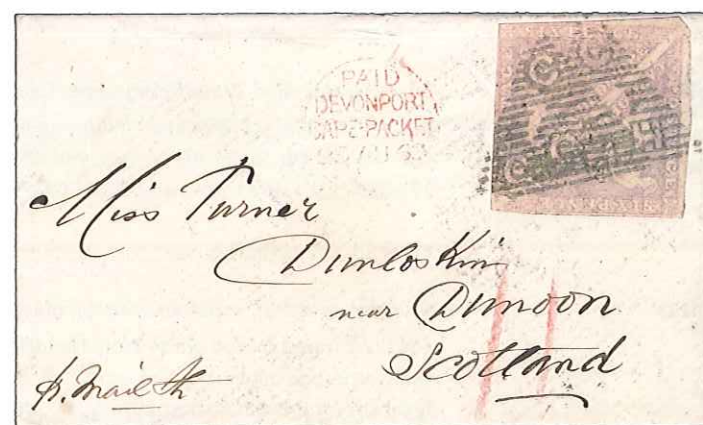 PAID
DEVONPORT
CAPE-PACKET
AU 63
SIX PENCE
Miss Turner
Dunloskin
near Dunoon
Scotland
pr. Mail St